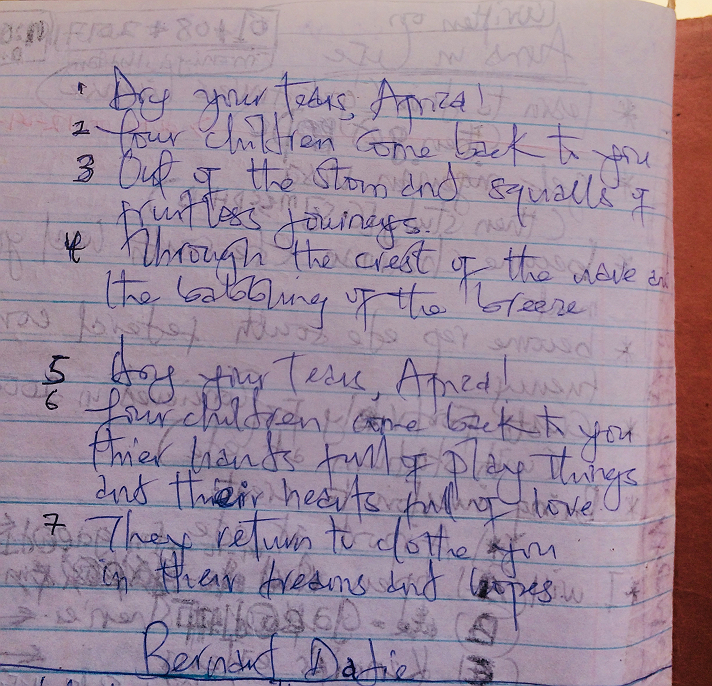 1 Dry your Tears, Africa!
2 Your children come back to you
3 Out of the storm and squalls of
fruitless journeys.
4 Through the crest of the wave an
the babbling of the breeze
5 Dry your Tears, Africa!
6 Your children come back to you
thier hands full of play things
and their hearts full of love
7 They return to clothe you
in their dreams and hopes
Bernard Dadie